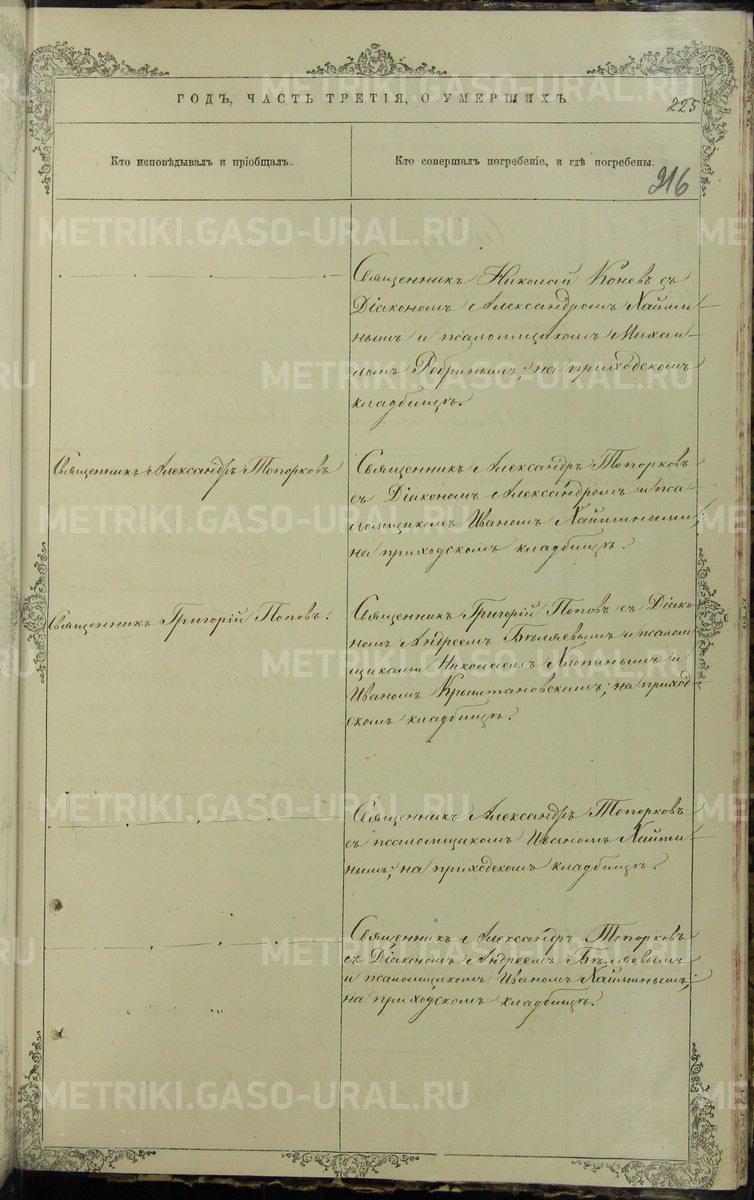 ГОДЪ, ЧАСТЬ ТРЕТІЯ, О УМЕРШИХЪ.
225
Кто исповѣдывалъ и пріобщалъ.
Кто совершалъ погребеніе, и гдѣ погребены.
216
Священникъ Николай Коневъ съ
Діакономъ Александромъ Хайми-
нымъ и псаломщикомъ Михаи-
ломъ на приходскомъ
кладбищѣ.
Священникъ Александръ Топорковъ
Священникъ Александръ Топорковъ
съ Діакономъ Александромъ и пса-
ломщикомъ Иваномъ Хаймиными;
на приходскомъ кладбищѣ.
Священникъ Григорій Поповъ.
Священникъ Григорій Поповъ съ Діако-
номъ Андреемъ Бѣляевымъ и псалом-
щиками Николаемъ и
Иваномъ Крыштановскимъ; на приход-
скомъ кладбищѣ.
Священникъ Александръ Топорковъ
съ псаломщикомъ Иваномъ Хайми-
нымъ; на приходскомъ кладбищѣ.
Священникъ Александръ Топорковъ
съ Діакономъ Андреемъ Бѣляевымъ
и псаломщикомъ Иваномъ Хайминымъ;
на приходскомъ кладбищѣ.
METRIKI.GASO-URAL.RU